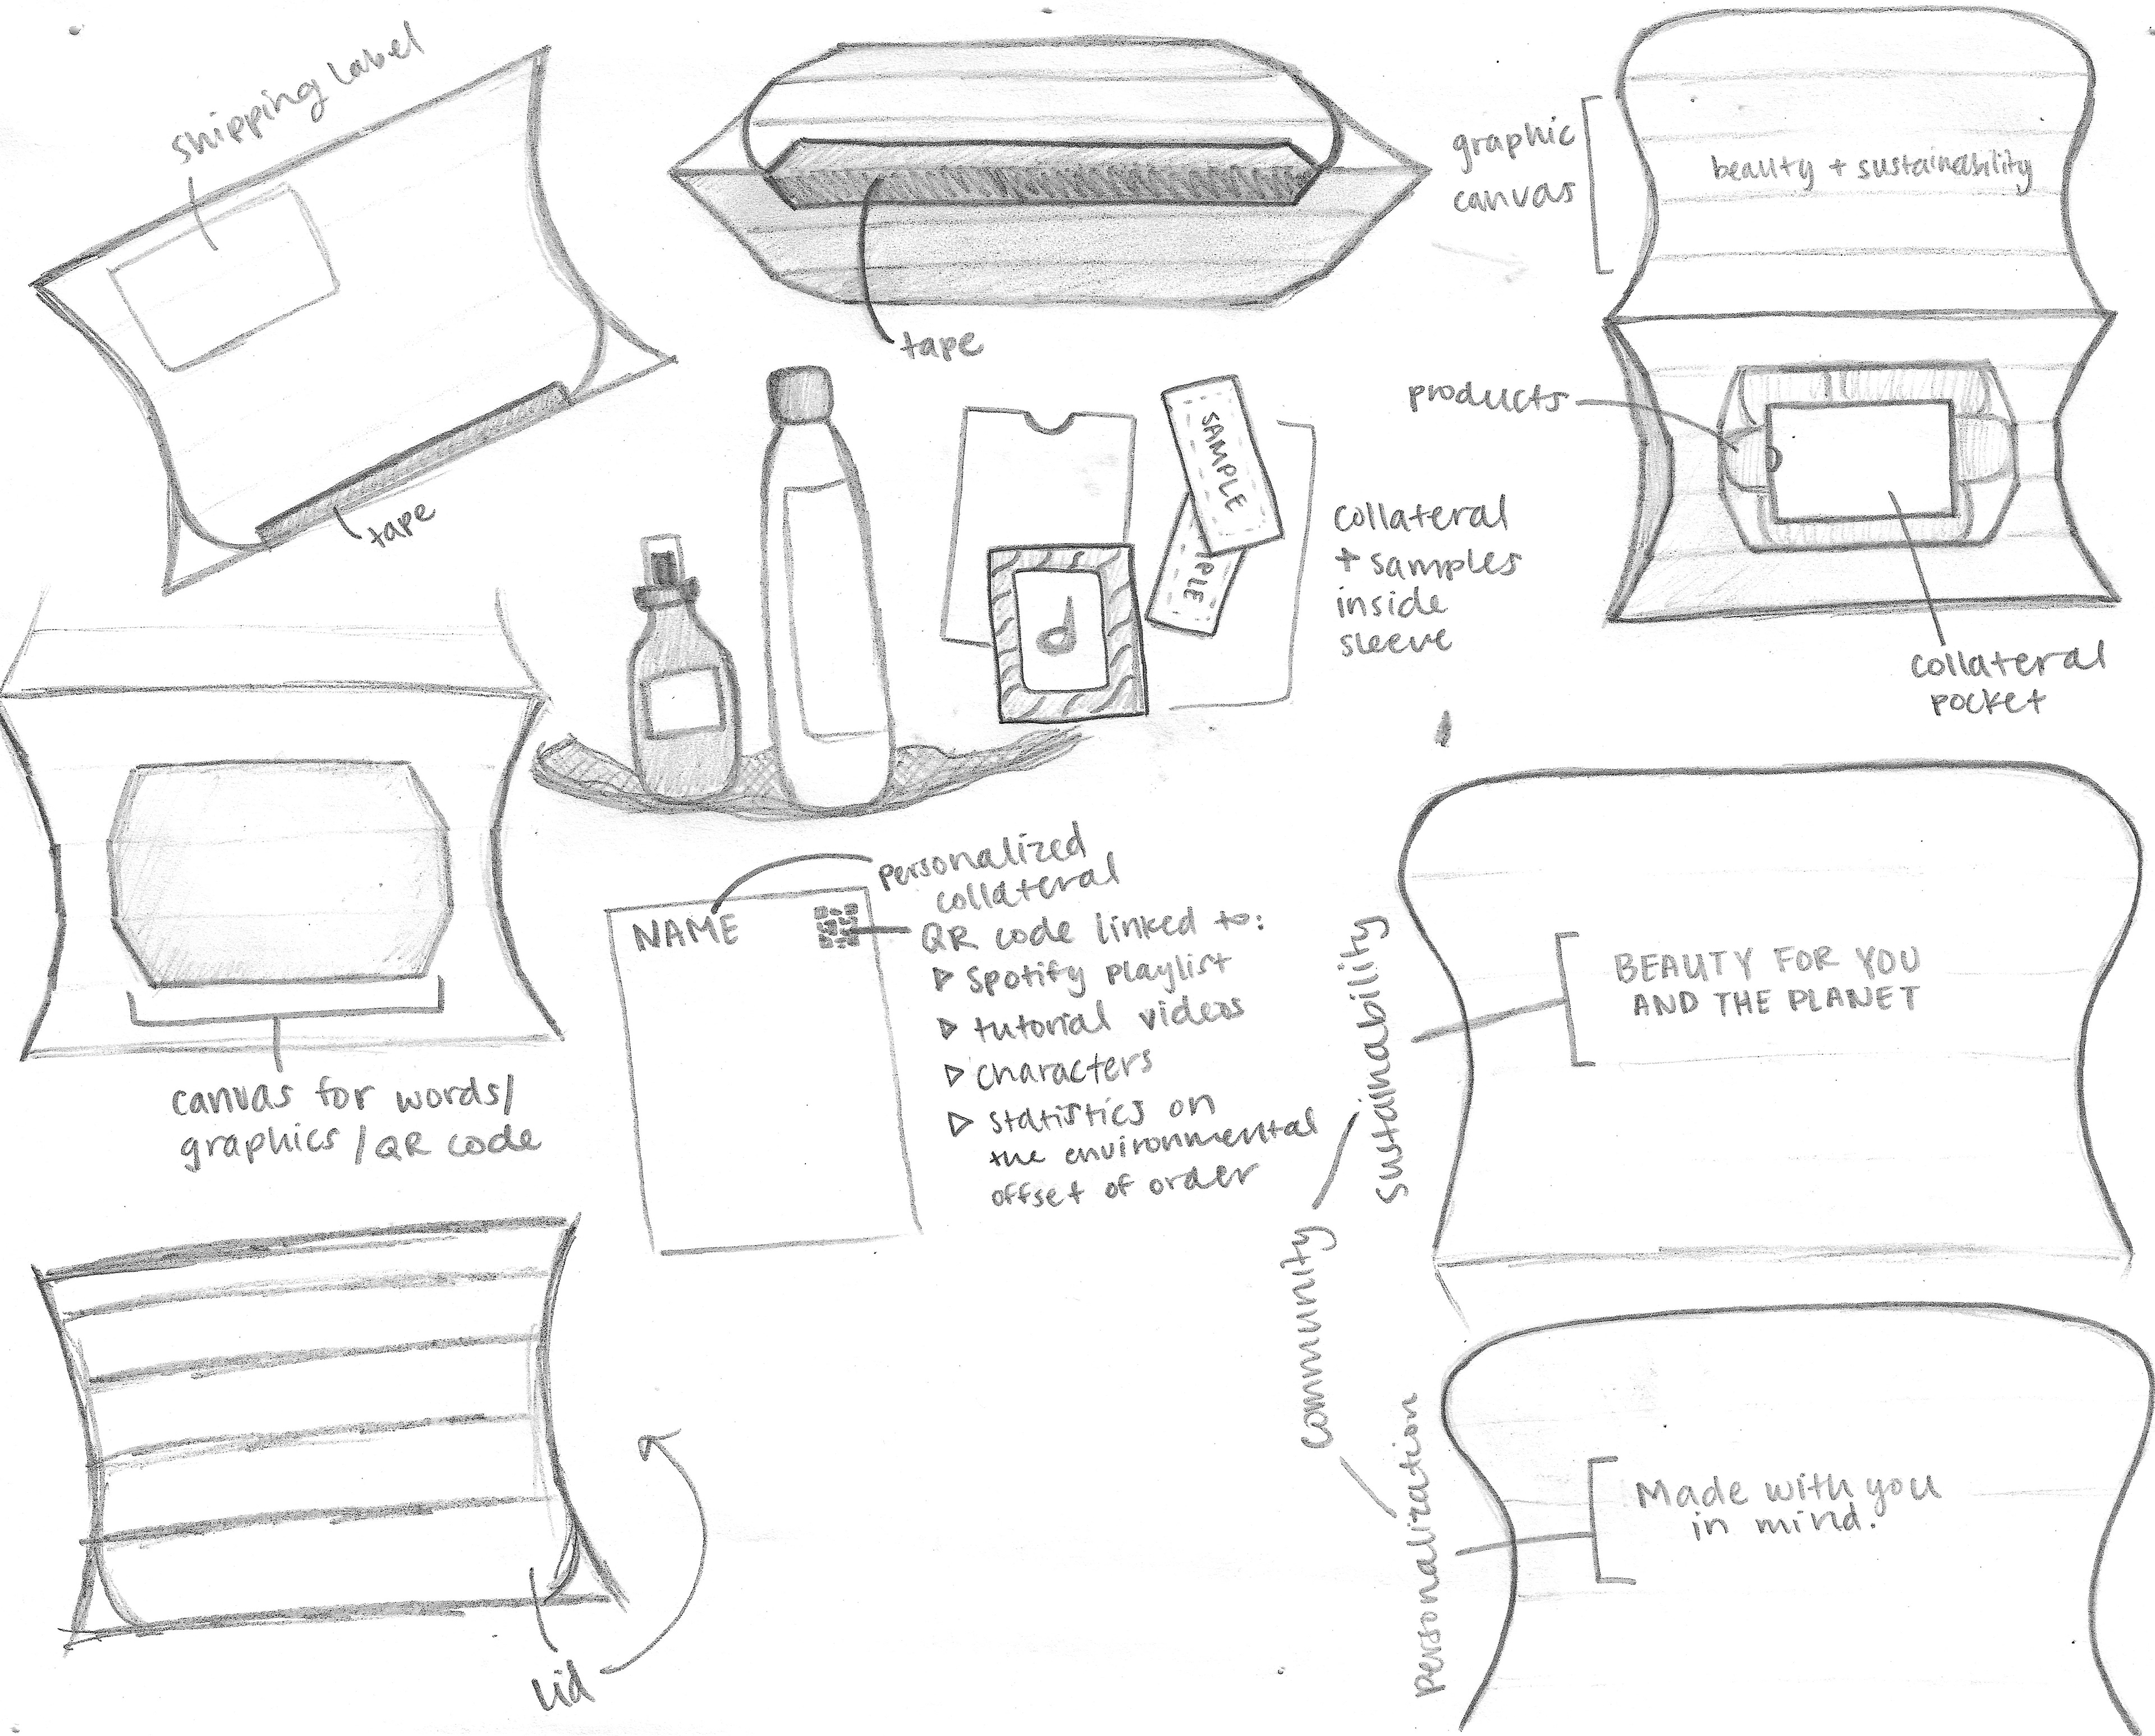 shipping label
tape
tape
graphic
canvas
beauty + sustainability
products
collateral
pocket
SAMPLE
PLE
d
collateral
+ samples
inside
sleeve
canvas for words/
graphics / QR code
NAME
personalized
collateral
QR code linked to:
▷ Spotify playlist
▷ tutorial videos
▷ characters
▷ statistics on
the environmental
offset of order
lid
sustainability
community
personalization
BEAUTY FOR YOU
AND THE PLANET
Made with you
in mind.